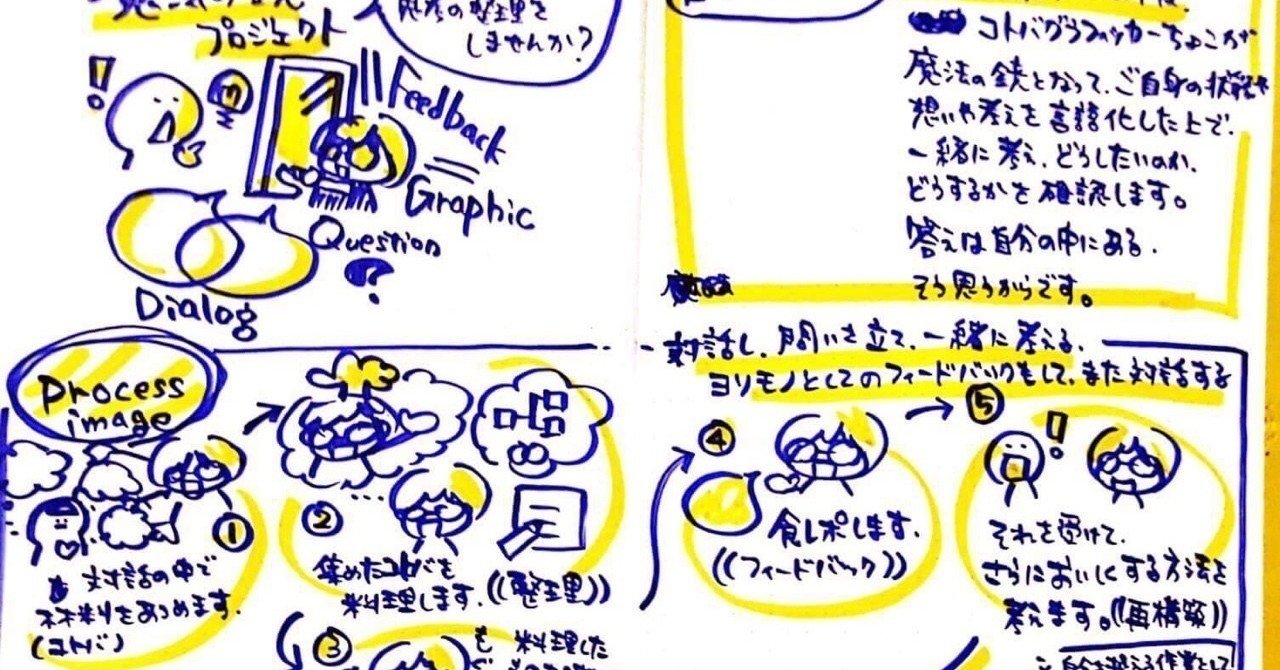 プロジェクト
思考の整理を
しませんか?
!
Feedback
Graphic
Question
?
Dialog
コトバグラフィッカーちょこが
魔法の鏡となって、ご自身の状態や
想いや考えを言語化した上で、
一緒に考え、どうしたいのか、
どうするかを確認します。
答えは自分の中にある、
そう思うからです。
対話し、問いを立て、一緒に考える、
ヨリモノとしてのフィードバックをして、また対話する
Process
image
①
対話の中で
材料をあつめます。
(コトバ)
②
集めたコトバを
料理します。((整理))
③
料理した
④
食レポします。
((フィードバック))
⑤
!
それを受けて、
さらにおいしくする方法を
考えます。((再構築))